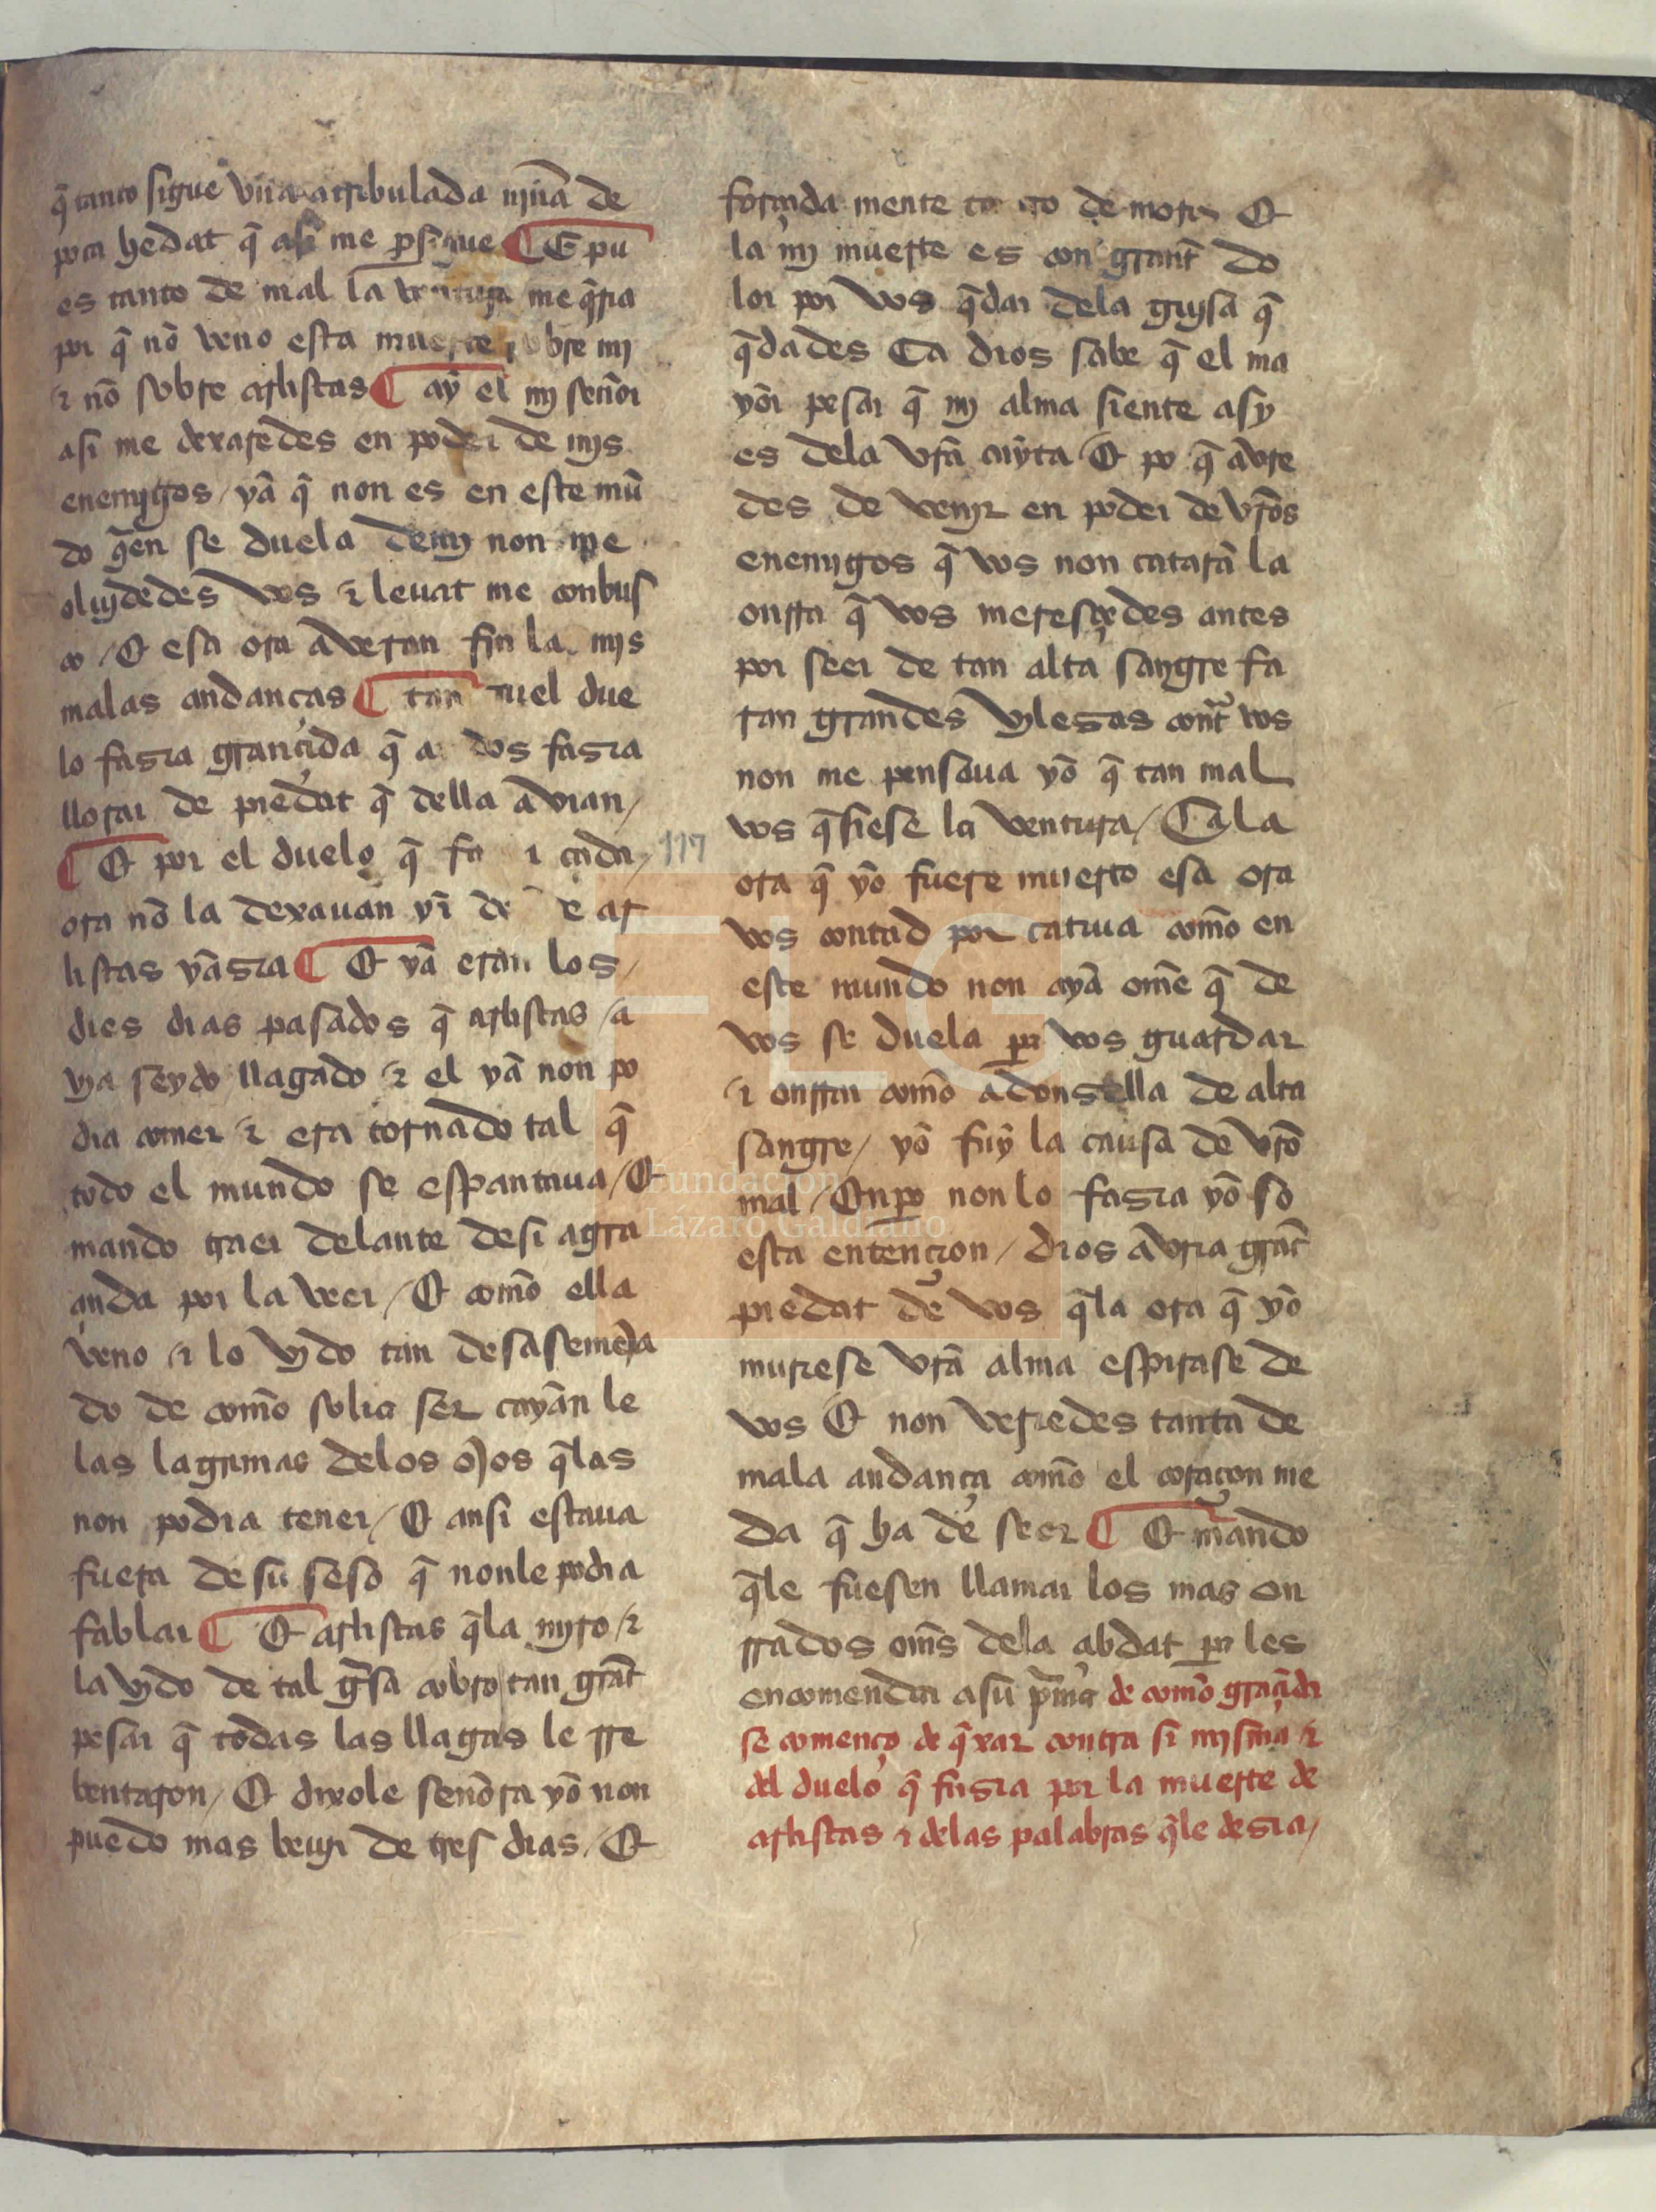 q̃ tanto sigue vna atribulada njña de
poca hedat q̃ asi me persigue ¶ E pu
es tanto de mal la ventura me q̃ria
por q̃ nõ veno esta muerte sobre mj
⁊ nõ sobre arlistas ¶ ay el mj señor
asi me dexaredes en poder de mjs
enemjgos / ya q̃ non es en este mũ
do q̃en se duela de mj non me
oluidedes vos ⁊ leuat me conbus
co / E esa ora averan fin las mjs
malas andanças ¶ tan cruel due
lo fazia graniçida q̃ a dos fazia
llorar de piedat q̃ della avian /
¶ E por el duelo q̃ fa cada /
ora nõ la dexauan yr ar
listas yazia ¶ E ya eran los /
dies dias pasados q̃ arlistas / a
uja seydo llagado ⁊ el ya non po
dia comer ⁊ era tornado tal q̃
todo el mundo se espantaua / E
mando traer delante de si a gra
çinda por la veer / E comõ ella
veno ⁊ lo vjdo tan desasemeja
do de comõ solia ser cayan le
las lagrimas delos ojos q̃ las
non podia tener / E ansi estaua
fuera de su seso q̃ non le podia
fablar ¶ E arlistas q̃ la mjro ⁊
la vjdo de tal gisa cobro tan grãt
pesar q̃ todas las llagas le rre
bentaron / E dixole señora yo non
puedo mas beujr de tres dias / E
forçada mente de morir E
la mj muerte es con grant do
lor por vos q̃dar dela gujsa q̃
q̃dades Ca dios sabe q̃ el ma
yor pesar q̃ mj alma siente asy
es dela vr̃a cuyta E por q̃ avre
des de venjr en poder de vr̃os
enemjgos q̃ vos non catarã la
onrra q̃ vos meresçedes antes
por seer de tan alta sangre fa
ran grandes vilezas contr̃ vos
non me pensaua yo q̃ tan mal
vos q̃siese la ventura / Ca la
ora q̃ yo fuere muerto esa ora
vos contad por catiua comõ en
este mundo non aya omẽ q̃ de
vos se duela pa vos guardar
⁊ onrrar comõ a donzella de alta
sangre / yo fuy la causa de vr̃o
mal / Enpo non lo fazia yo so
esta entençion / dios avria grãt
piedat de vos q̃ la ora q̃ yo
muriese vr̃a alma espirase de
vos E non veriedes tanta de
mala andança comõ el coraçon me
da q̃ ha de seer ¶ E mando
q̃ le fuesen llamar los mas on
rrados oms̃ dela abdat pa les
encomendar a su prima de comõ graçinda
se començo de q̃xar contra si mjsma ⁊
del duelo q̃ fazia por la muerte de
arlistas ⁊ delas palabras q̃ le dezia /
117
FLG
Fundación
Lázaro Galdiano